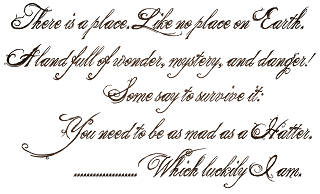 There is a place. Like no place on Earth.
A land full of wonder, mystery, and danger!
Some say to survive it:
You need to be as mad as a Hatter.
................... Which luckily I am.